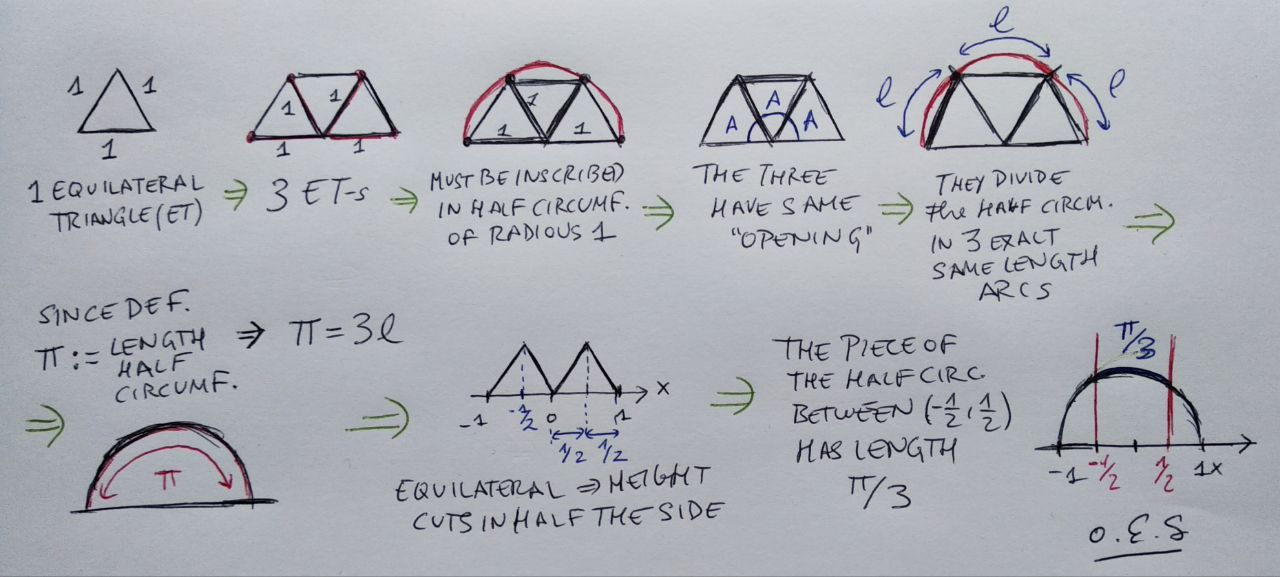 1
1
1
1 EQUILATERAL
TRIANGLE (ET)
⇒
1
1
1
1
3 ET-s
⇒
1
1
1
MUST BE INSCRIBED
IN HALF CIRCUMF.
OF RADIOUS 1
⇒
A
A
A
THE THREE
HAVE SAME
"OPENING"
⇒
l
l
l
THEY DIVIDE
the HALF CIRCM.
IN 3 EXACT
SAME LENGTH
ARCS
⇒
SINCE DEF.
π := LENGTH
HALF
CIRCUMF.
⇒ π = 3l
⇒
π
⇒
-1
-1/2
0
1
x
1/2
1/2
EQUILATERAL ⇒ HEIGHT
CUTS IN HALF THE SIDE
⇒
THE PIECE OF
THE HALF CIRC.
BETWEEN (-1/2, 1/2)
HAS LENGTH
π/3
π/3
-1
-1/2
1/2
1
x
O.E.S